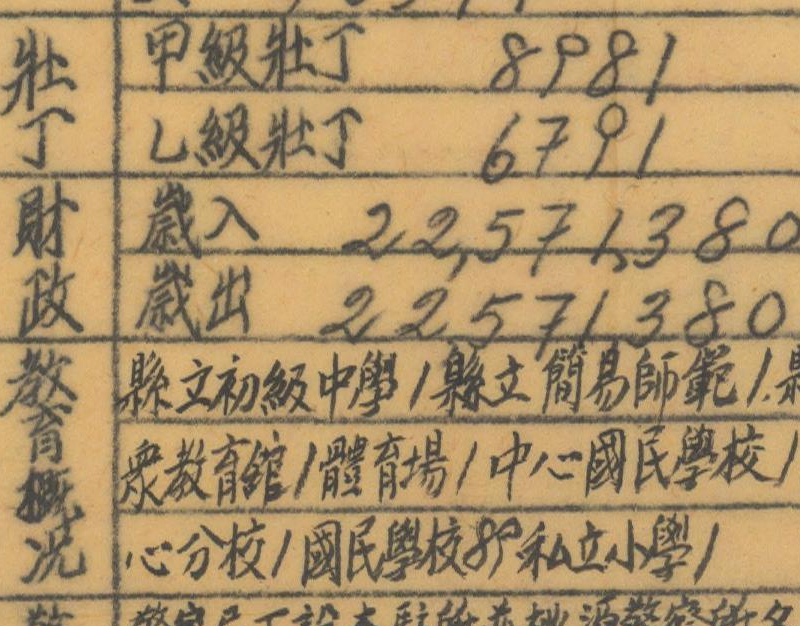 壯丁
甲級壯丁 8981
乙級壯丁 6791
財政
歲入 22,571,380
歲出 22571380
教育概况
縣立初級中學1縣立簡易師範1.縣
衆教育館1體育場1中心國民學校1
心分校1國民學校89私立小學1